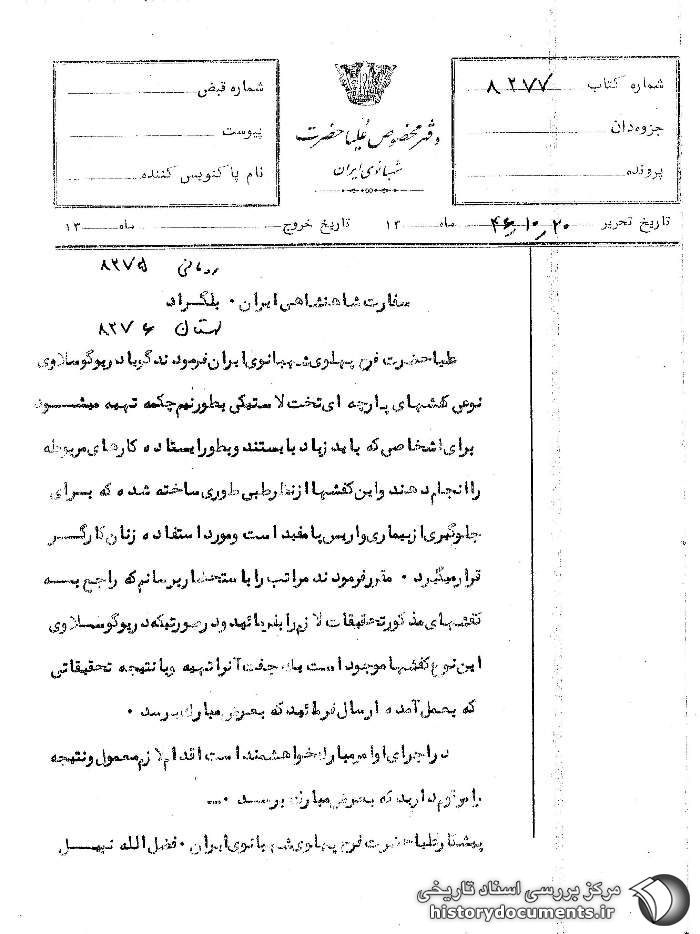 شماره کتاب ۸۲۷۷
جزوه‌دان
پرونده
دفتر مخصوص علیاحضرت
شهبانوی ایران
شماره قبض
پیوست
نام پاکنویس کننده
تاریخ تحریر ۴۶٫۱۰٫۲۰ ماه ۱۳
تاریخ خروج ماه ۱۳
۸۲۷۵
سفارت شاهنشاهی ایران ۰ بلگراد
۸۲۷۶
علیاحضرت فرح پهلوی شهبانوی ایران فرمودند گویا در یوگوسلاوی
نوعی کفشهای پارچه ای تخت لاستیکی بطور نیم چکمه تهیه میشود
برای اشخاصی که باید زیاد بایستند وبطور ایستاده کارهای مربوطه
را انجام دهند واین کفشها از نظر طبی طوری ساخته شده که برای
جلوگیری از بیماری واریس پا مفید است ومورد استفاده زنان کارگر
قرار میگیرد ۰ مقرر فرمودند مراتب را باستحضار برسانم که راجع به
کفشهای مذکور تحقیقات لازم را بفرمائید ودر صورتیکه در یوگوسلاوی
این نوع کفشها موجود است یک جفت آنرا تهیه وبا نتیجه تحقیقاتی
که بعمل آمده ارسال فرمائید که بعرض مبارک برسد ۰
در اجرای اوامر مبارک خواهشمند است اقدام لازم معمول ونتیجه
را مرقوم دارید که بعرض مبارک برسد ۰...
پیشکار علیاحضرت فرح پهلوی شهبانوی ایران ۰ فضل الله نبیل
مرکز بررسی اسناد تاریخی
historydocuments.ir